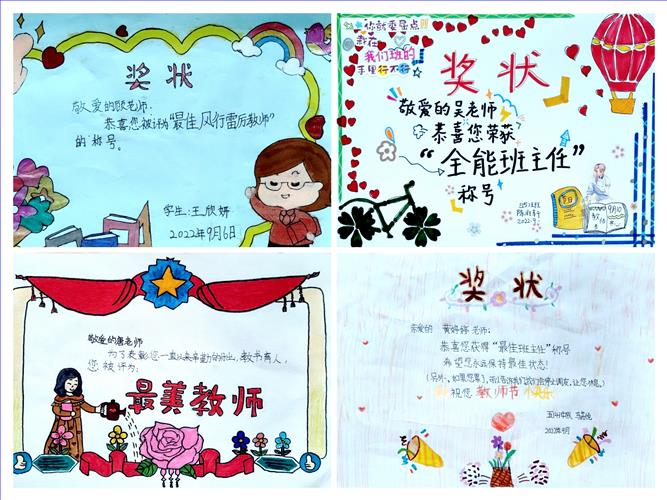 奖状
敬爱的殷老师:
恭喜您被评为“最佳风行雷厉教师”
的称号。
学生:王欣妍
2022年9月6日
你就委屈点!!!
栽在
我们班的
手里行不行
奖状
敬爱的吴老师
恭喜您荣获
“全能班主任”
称号
2022.9.
9月10
奖状
敬爱的唐老师
为了表彰您一直以来辛勤的付出,教书育人,
您被评为:
最美教师
奖状
亲爱的 黄婷婷 老师:
恭喜您获得“最佳班主任”称号
希望您永远保持最佳状态!
(另外,如果您累了,可以告诉我们,我们会停止调皮,让您休息。)
祝您 教师节快乐
2022年9月